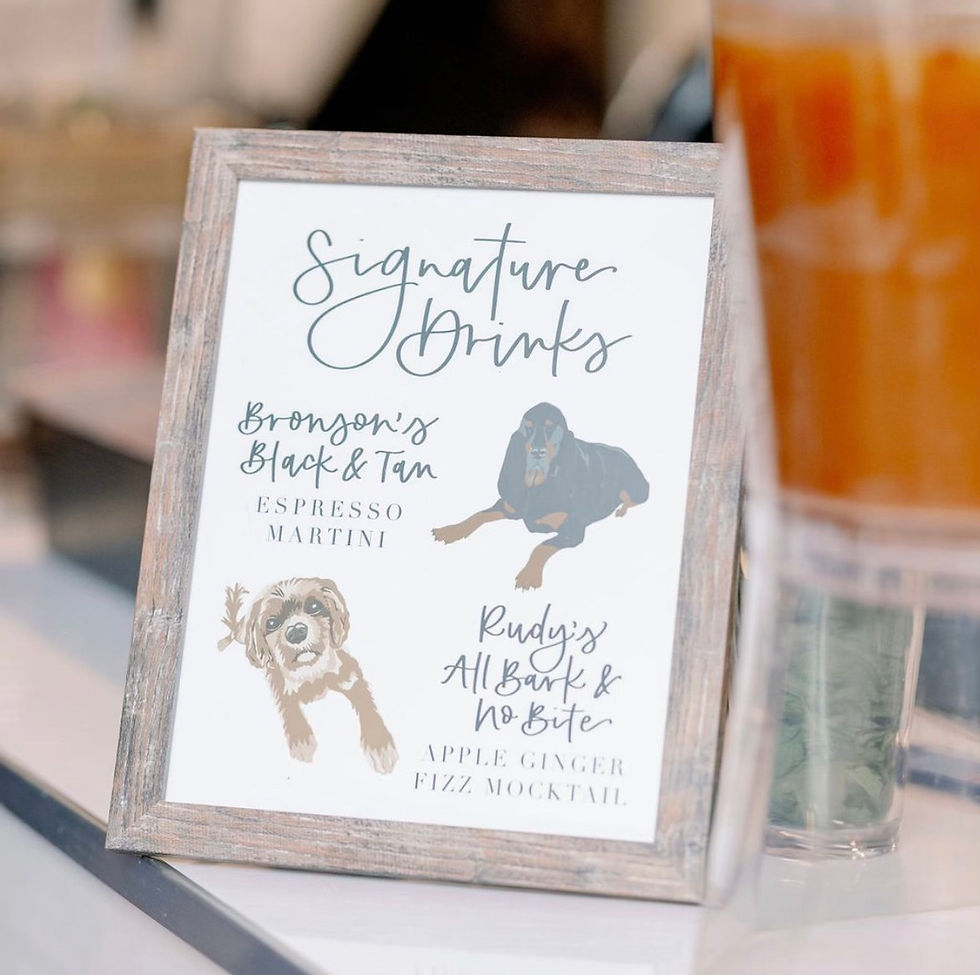 Signature
Drinks
Bronson's
Black & Tan
ESPRESSO
MARTINI
Rudy's
All Bark &
No Bite
APPLE GINGER
FIZZ MOCKTAIL